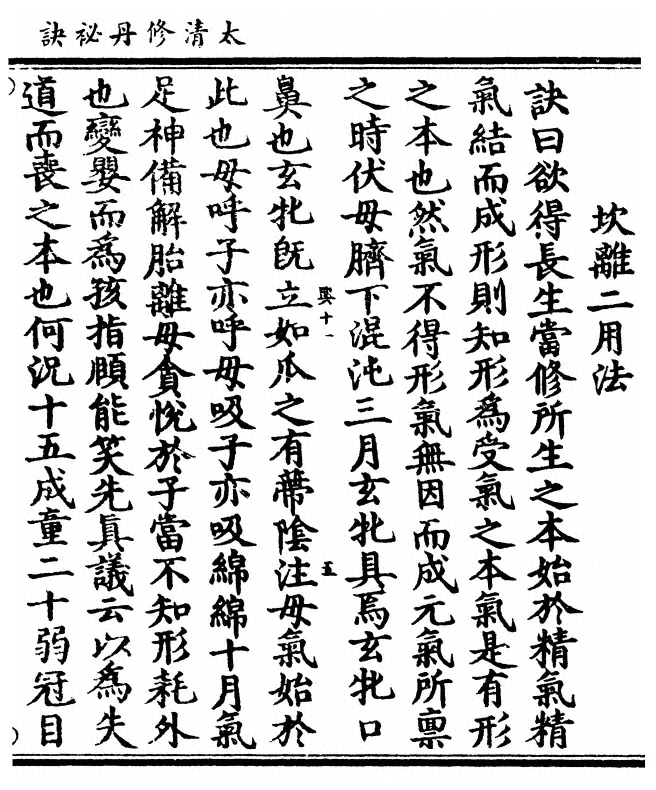 太清修丹祕訣
坎離二用法
訣曰欲得長生當修所生之本始於精氣精
氣結而成形則知形為受氣之本氣是有形
之本也然氣不得形氣無因而成元氣所禀
之時伏母臍下混沌三月玄牝具焉玄牝口
鼻也玄牝旣立如瓜之有蔕陰注母氣始於
興十一
五
此也母呼子亦呼母吸子亦吸綿綿十月氣
足神備解胎離母貪悅於子當不知形耗外
也變嬰而為孩指頤能笑先真議云以為失
道而喪之本也何況十五成童二十弱冠目